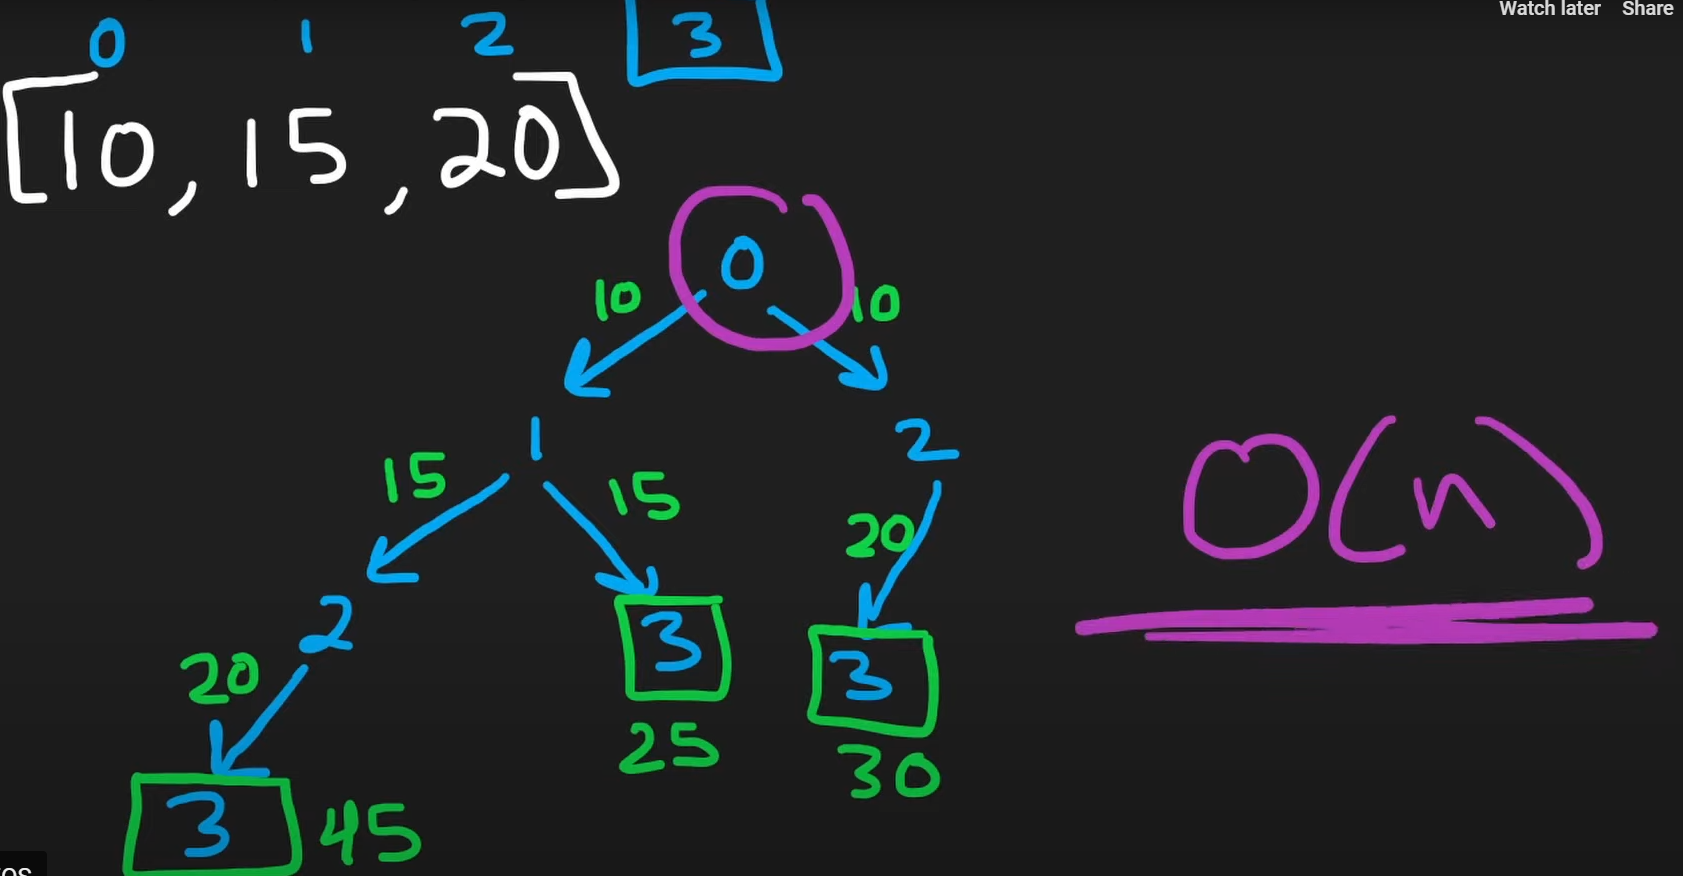 Watch later Share
0 1 2 3
[10, 15, 20]
0
10 10
1 2
15 15 20
2 3 3
20 25 30
3 45